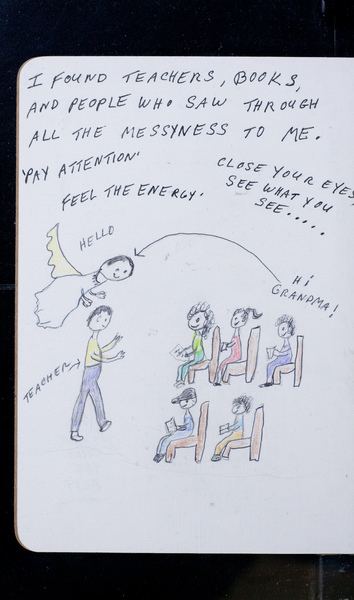 I FOUND TEACHERS, BOOKS,
AND PEOPLE WHO SAW THROUGH
ALL THE MESSYNESS TO ME.
'PAY ATTENTION'
FEEL THE ENERGY.
CLOSE YOUR EYES,
SEE WHAT YOU
SEE.....
HELLO
Hi
GRANDMA!
TEACHER